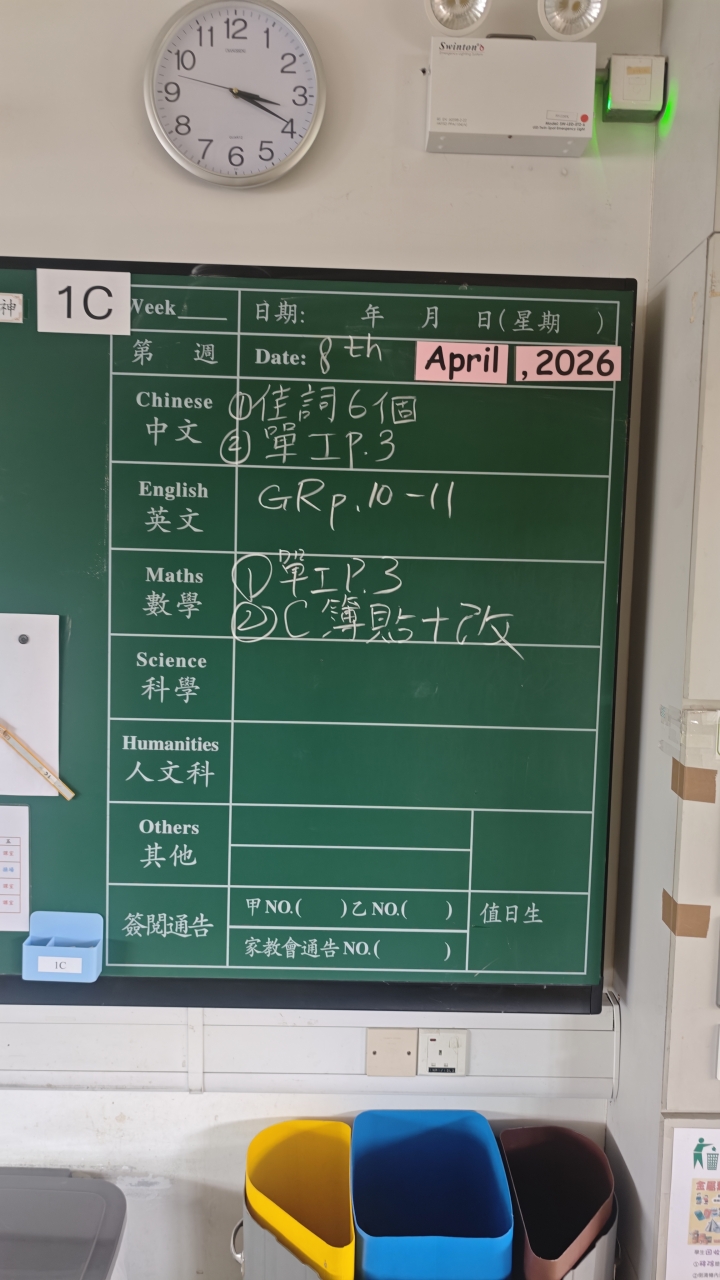 12
1
2
3
4
5
6
7
8
9
10
11
QUARTZ
Swinton's
神
1C
Week
日期: 年 月 日(星期 )
第 週
Date: 8th April , 2026
Chinese
中文
①佳詞6個
② 單工P.3
English
英文
GRp.10-11
Maths
數學
①單工P.3
②C簿貼+改
Science
科學
Humanities
人文科
Others
其他
簽閱通告
甲NO.( )乙NO.( )
家教會通告NO.( )
值日生
1C